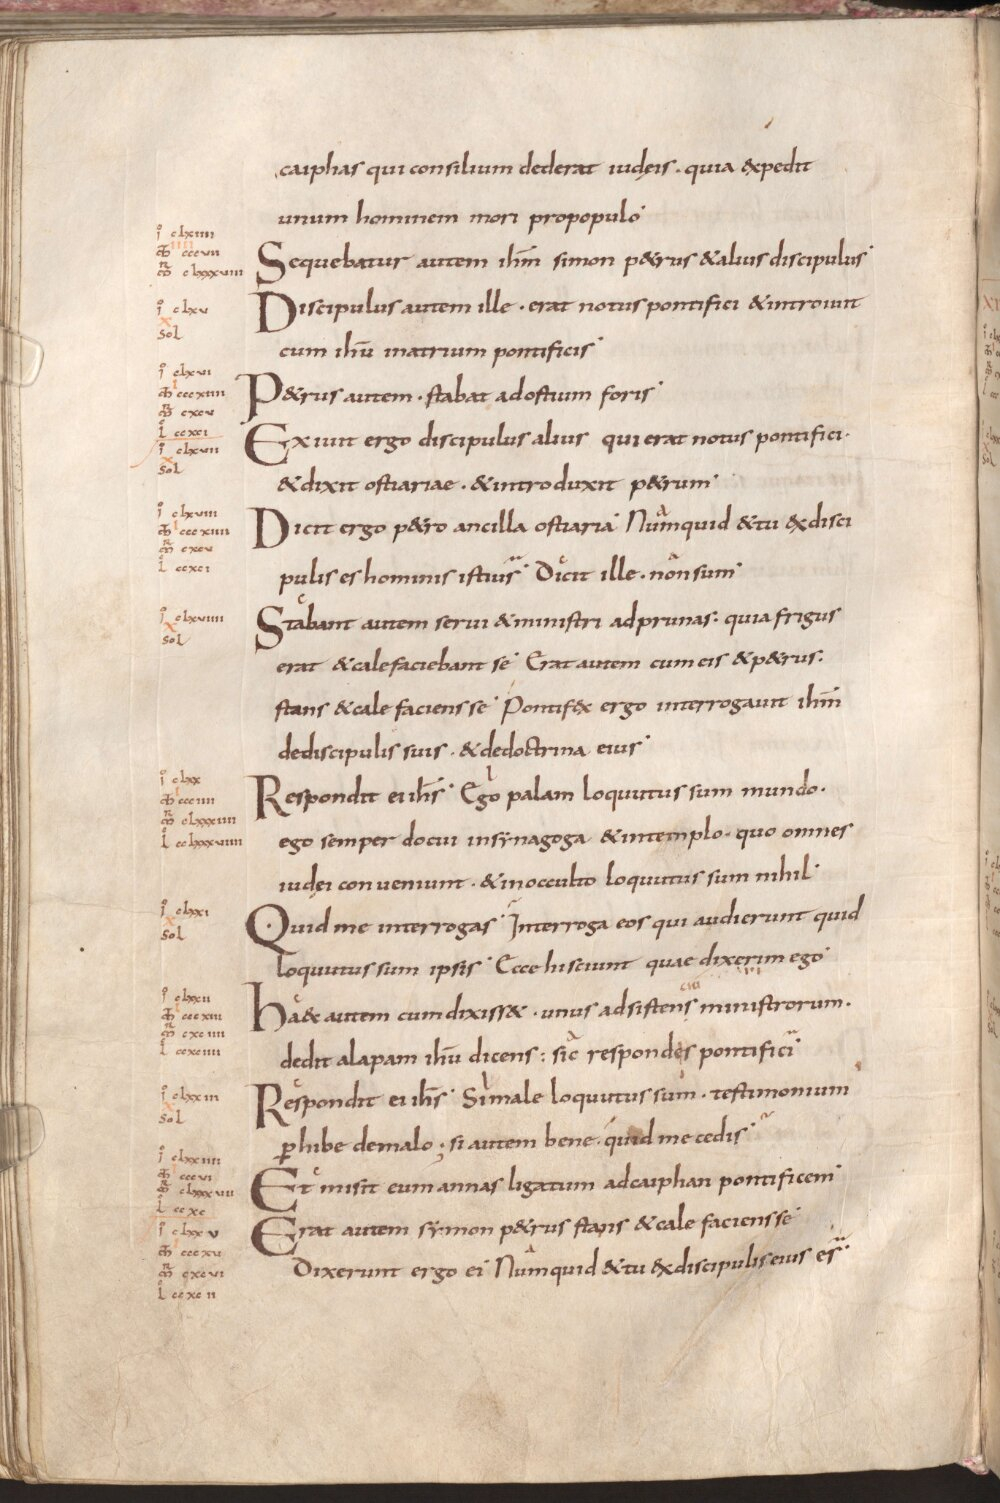 caiphas qui consilium dederat iudęis . quia &pedit
unum hominem mori propopulo
i clxiiii
ccevii
clxxxviii
Sequebatur autem ihm simon p&rus &alius discipulus
i clxv
sol
Discipulus autem ille . erat notus pontifici &introiuit
cum ihu inatrium pontificis
i clxvi
cccxiiii
cxcv
l ccxci
P&rus autem . stabat adostium foris
i clxvii
sol
Exiuit ergo discipulus alius qui erat notus pontifici .
&dixit ostiariae . &introduxit p&rum
i clxviii
cccxiiii
cxcv
l ccxci
Dicit ergo p&ro ancilla ostiaria Numquid &tu exdisci
pulis es hominis istius Dicit ille . non sum
i clxviiii
sol
Stabant autem serui &ministri adprunas . quia frigus
erat &calefaciebant se Erat autem cum eis &p&rus .
stans &calefaciens se Pontifex ergo interrogauit ihm
dediscipulis suis . &dedoctrina eius
i clxx
ccciiii
clxxxiiii
l cclxxxviiii
Respondit ei ihs Ego palam loquutus sum mundo .
ego semper docui insynagoga &intemplo . quo omnes
iudęi conueniunt . &inocculto loquutus sum nihil
i clxxi
sol
Quid me interrogas Interroga eos qui audierunt quid
loquutus sum ipsis Ecce hi sciunt quae dixerim ego
i clxxii
cccxiii
cxciiii
l ccxciiii
Ha& autem cum dixiss& . unus adsistens ministrorum .
dedit alapam ihu dicens : sic respondes pontifici
i clxxiii
sol
Respondit ei ihs Si male loquutus sum . testimonium
phibe demalo ; si autem bene . quid me cedis
i clxxiiii
cccvi
clxxxvii
l ccxc
Et misit eum annas ligatum adcaiphan pontificem
i clxxv
cccxv
cxcvi
l ccxcii
Erat autem symon p&rus stans &calefaciens se
Dixerunt ergo ei Numquid &tu exdiscipulis eius es